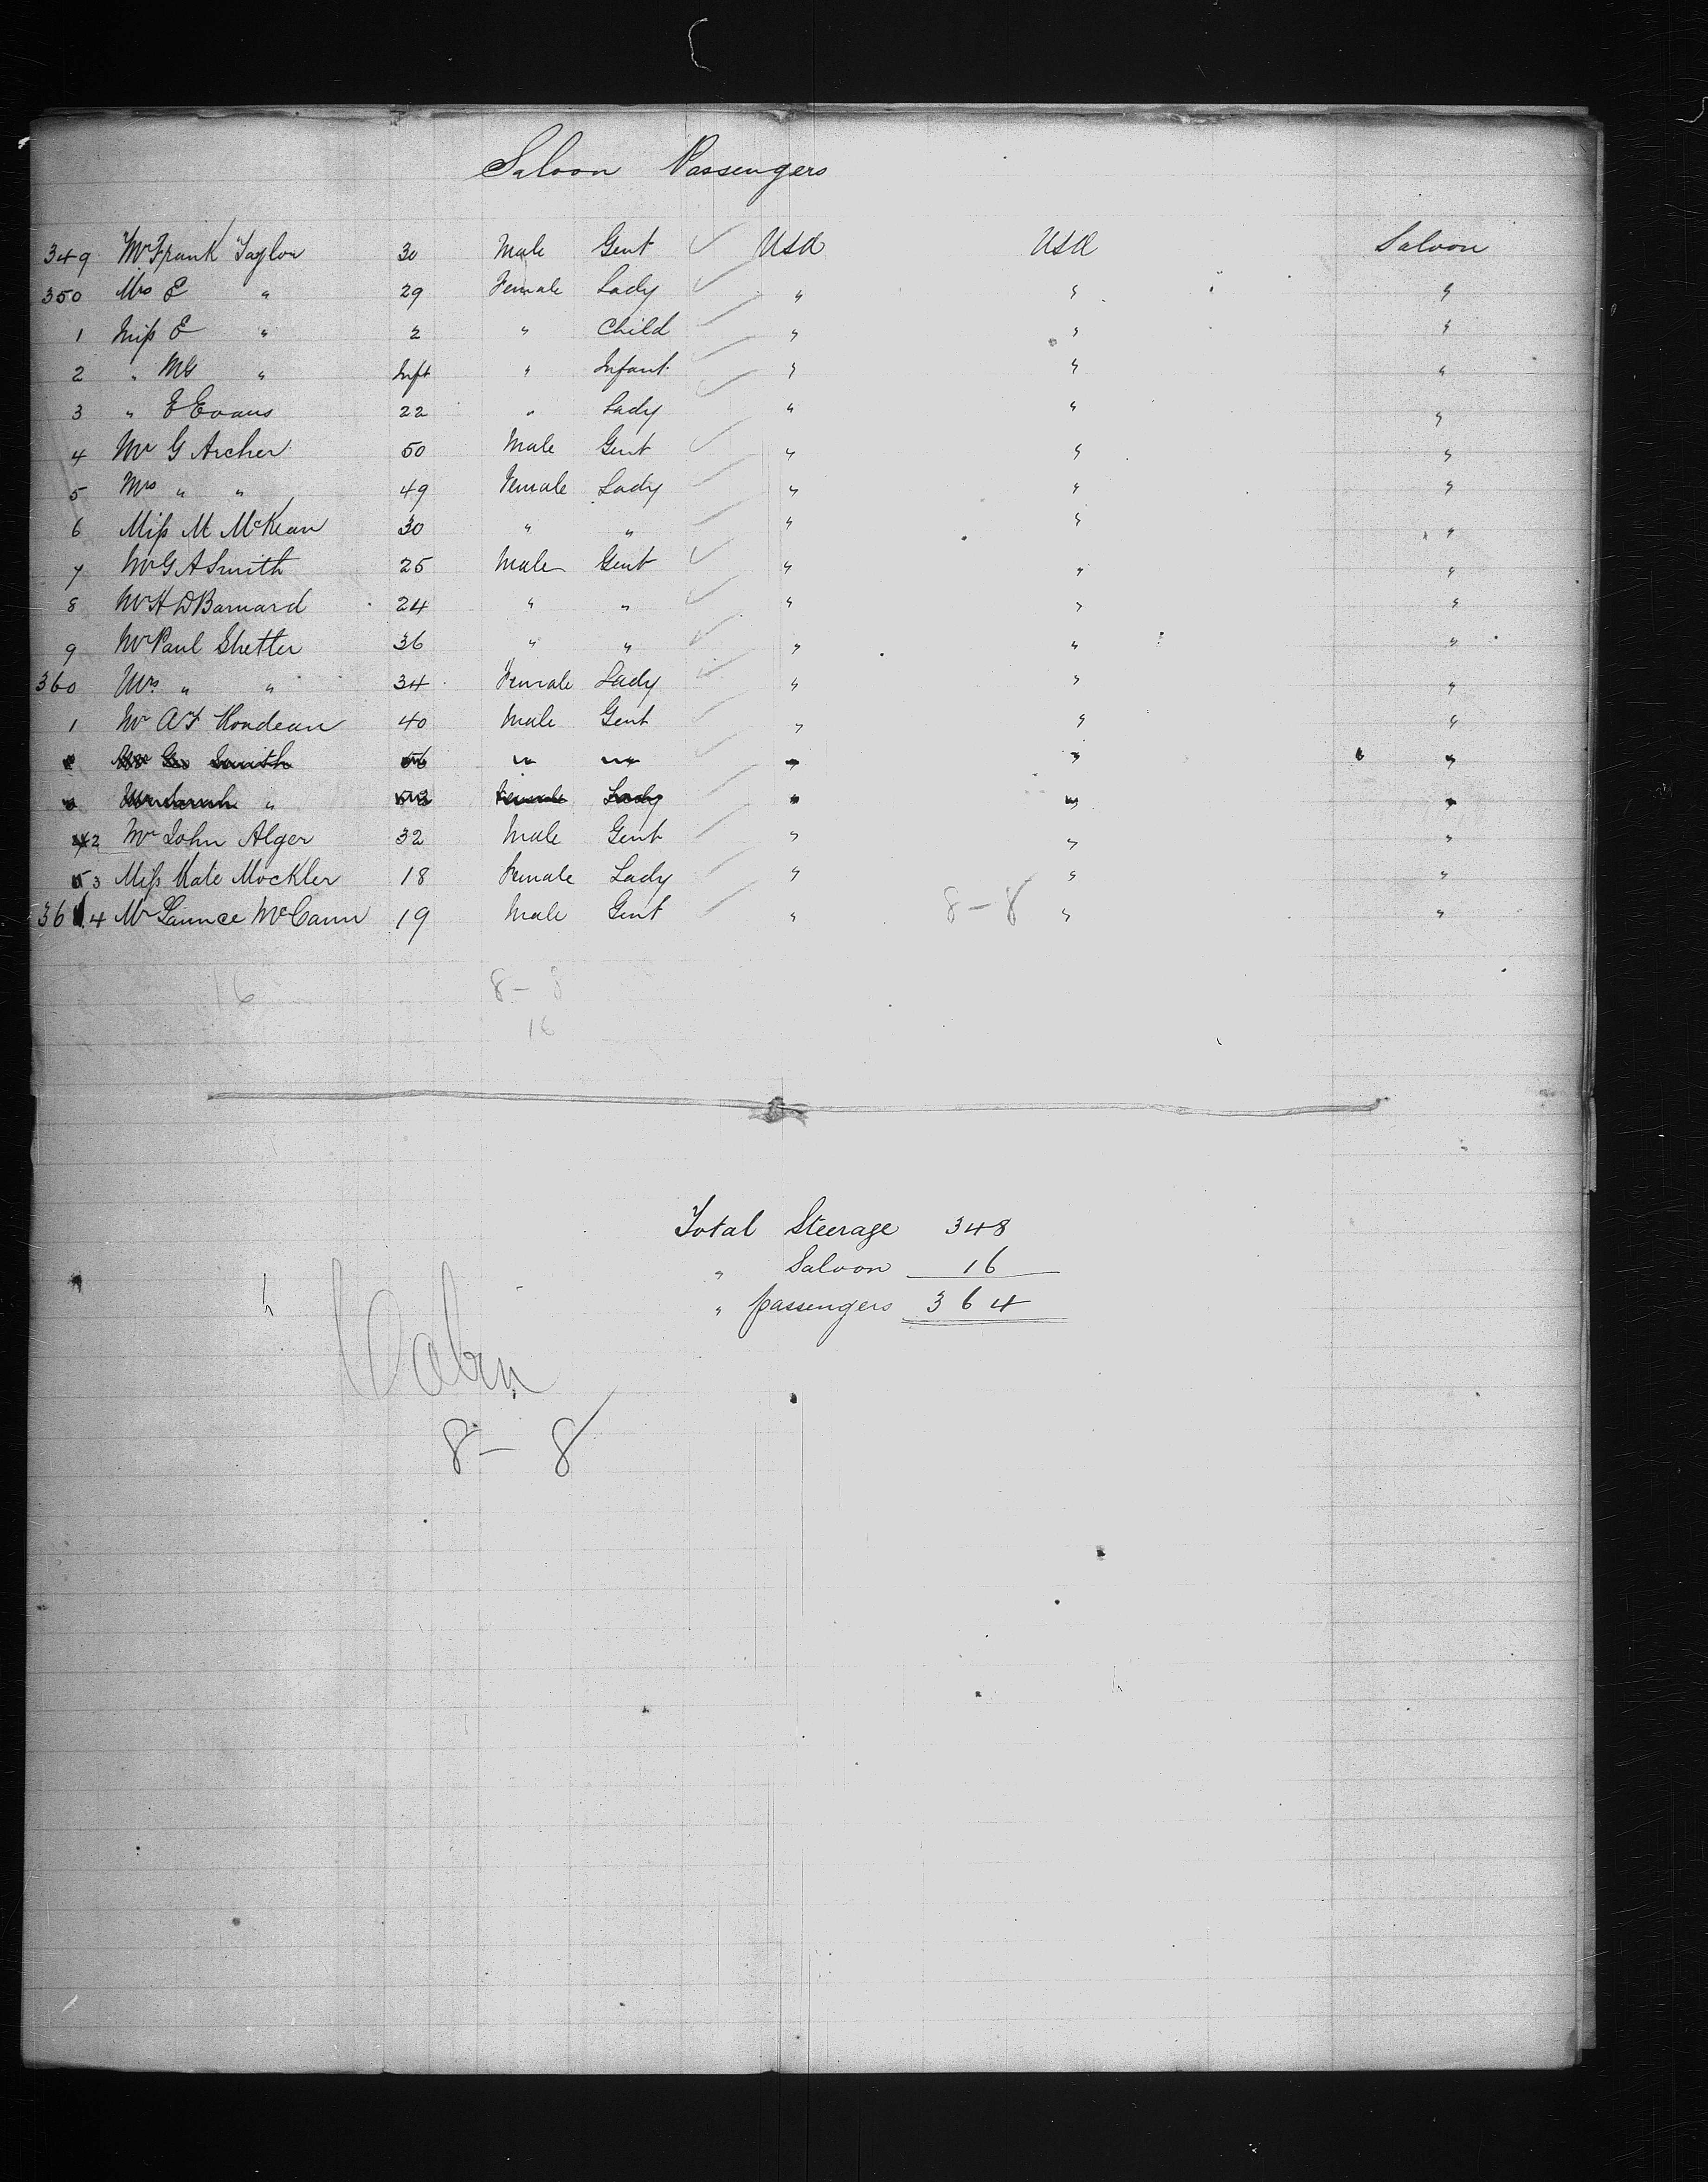 Saloon Passengers
349 Mr Frank Taylor 30 Male Gent USA USA Saloon
350 Mrs E " 29 Female Lady " " "
1 Miss E " 2 " Child " " "
2 " MG " Inft " Infant " " "
3 " E Evans 22 " Lady " " "
4 Mr G Archer 50 Male Gent " " "
5 Mrs " " 49 Female Lady " " "
6 Miss M McKean 30 " " " " "
7 Mr G A Smith 25 Male Gent " " "
8 Mr H D Barnard 24 " " " " "
9 Mr Paul Shetter 36 " " " " "
360 Mrs " " 34 Female Lady " " "
1 Mr A F 40 Male Gent " " "
Mr Geo Smith 56 " " " " "
Sarah " Female Lady " " "
2 Mr John Alger 32 Male Gent " " "
3 Miss Kate Mockler 18 Female Lady " " "
364 Mr McCann 19 Male Gent " 8-8 " "
16 8-8
16
Total Steerage 348
" Saloon 16
" passengers 364
Cabin
8-8